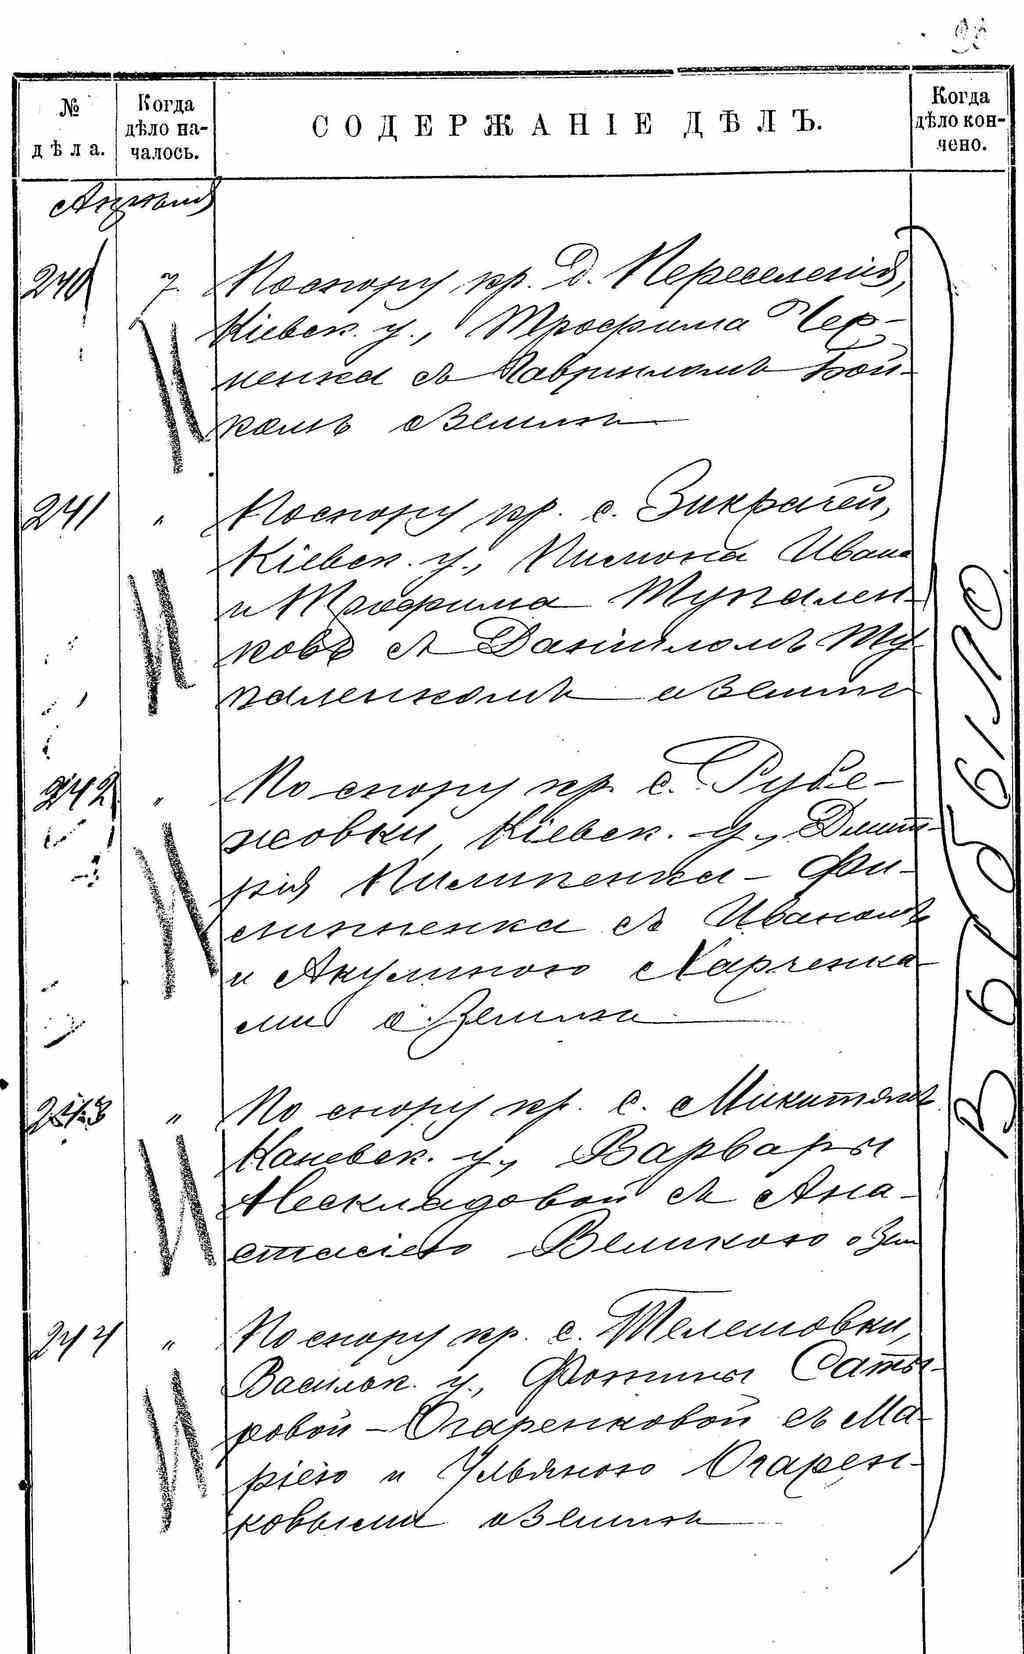 № дѣла.
Когда дѣло началось.
СОДЕРЖАНІЕ ДѢЛЪ.
Когда дѣло кончено.
Апрѣля
240 7. По спору кр. д. Переселенія,
Кіевск. у., Трофима Чер-
ненка съ Гавриломъ Бой-
комъ о Землѣ
241 " По спору кр. с. Зикрачей,
Кіевск. у., Пимона Ивана
и Трофима Тупален-
ковъ съ Даніиломъ Ту-
паленкомъ о Землѣ
242 " По спору кр. с. Рубе-
жовки, Кіевск. у., Дмит-
рія Пилипенка-Фи-
липпенка съ Иваномъ
и Акулиною Харченка-
ми о Землѣ
243 " По спору кр. с. Микитянъ
Каневск. у., Варвары
Нескладовой съ Ана-
стасіею Великою о Зем
244 " По спору кр. с. Телешовки,
Васильк. у., Фотины Саты-
ровой-Огаренковой съ Ма-
ріею и Ульяною Огарен-
ковыми о Землѣ
ВЫБЫЛО.